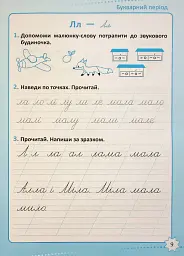 Букварний період
Лл — Лл
1. Допоможи малюнку-слову потрапити до звукового будиночка.
2. Наведи по точках. Прочитай.
ла ло лі лу ла ле мала мало
малі малу мали
3. Прочитай. Напиши за зразком.
Л л ла ал лама мала
Алла і Міла. Міла мала
мило
9